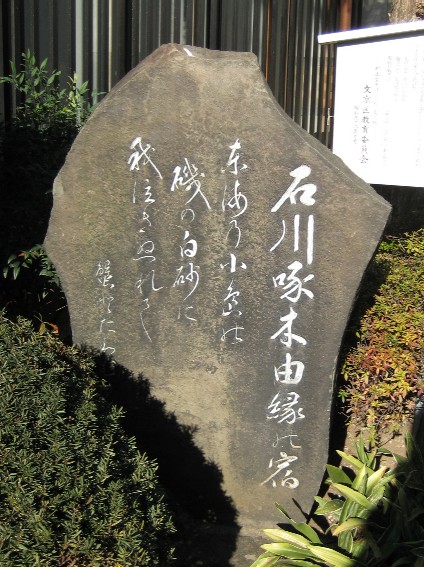 石川啄木由縁の宿
東海の小島の
磯の白砂に
我泣きぬれて
蟹とたわ
文京区教育委員会